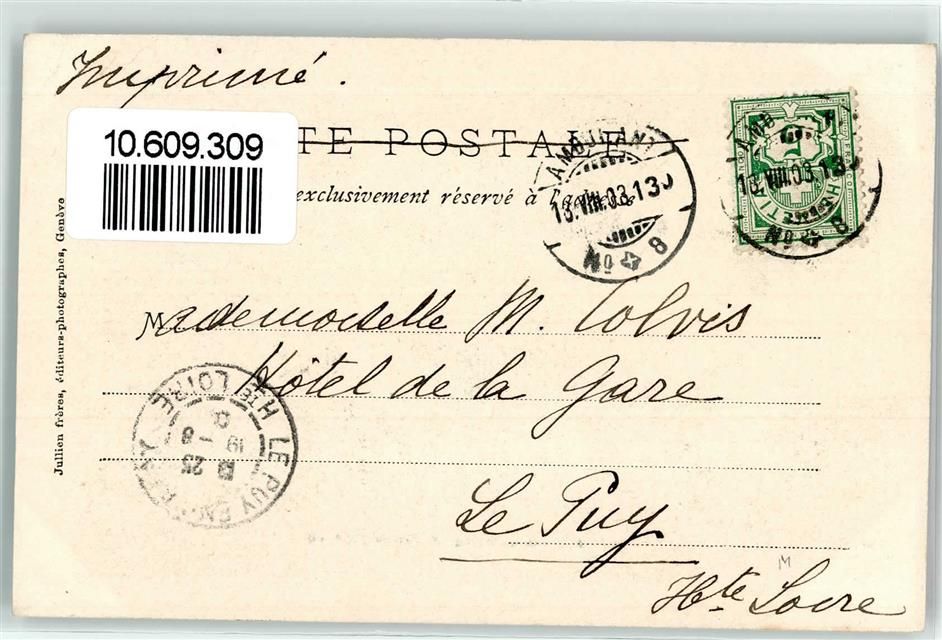 Imprimé.
10.609.309
TE POSTALE
exclusivement réservé à l'adresse
AMBULANT
13.VIII.03.13
No 8
13.VIII.03.13
No 8
Mademoiselle M. Colvis
Hôtel de la Gare
Le Puy
Hte Loire
LE PUY EN VELAY
HTE LOIRE
19-8
Jullien frères, éditeurs-photographes, Genève
M